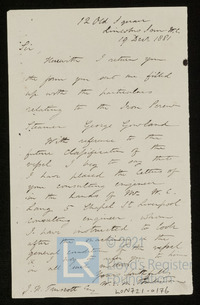 12 Old Square
Lincolns Inn W.C.
19 Decr. 1881
Sir
Herewith I return you
the form you sent me filled
up with the particulars
relating to the Iron Screw
Steamer George Gowland
With reference to the
future classification of the
vessel I beg to say that
I have placed the letters of
your consulting engineer
in the hands of Mr W. C.
5 Chapel St Liverpool
consulting engineer whom
I have instructed to look
after the
general
in
© 2021
Lloyd's Register
LON721-0176